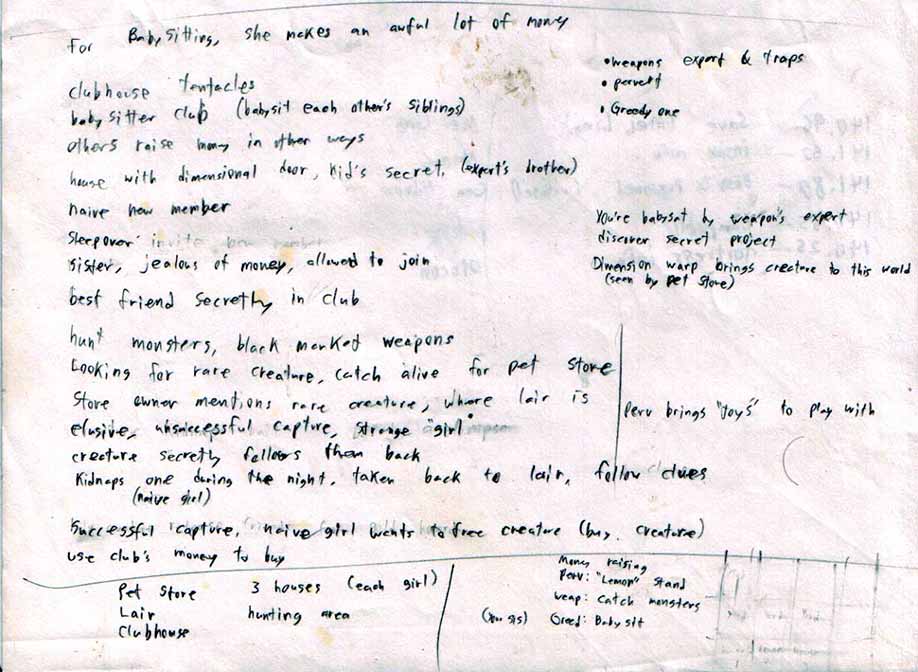 For Babysitting, she makes an awful lot of money
• weapons expert & traps
• pervert
• Greedy one
clubhouse tentacles
babysitter club (babysit each other's siblings)
others raise money in other ways
house with dimensional door, kid's secret, (expert's brother)
naive new member
Sleepover invite new member
sister, jealous of money, allowed to join
best friend secretly in club
You're babysat by weapon's expert
discover secret project
Dimension warp brings creature to this world
(seen by pet store)
hunt monsters, black marked weapons
Looking for rare creature, catch alive for pet store
Store owner mentions rare creature, where lair is
elusive, unsuccessful capture, strange "girl"
creature secretly follows them back
Kidnaps one during the night, taken back to lair, follow clues
(naive girl)
Perv brings "toys" to play with
Successful capture, naive girl wants to free creature (buy creature)
use club's money to buy
Pet Store 3 houses (each girl)
Lair hunting area
Clubhouse
Money raising
Perv: "Lemon" Stand
weap: Catch monsters
Greed: Babysit